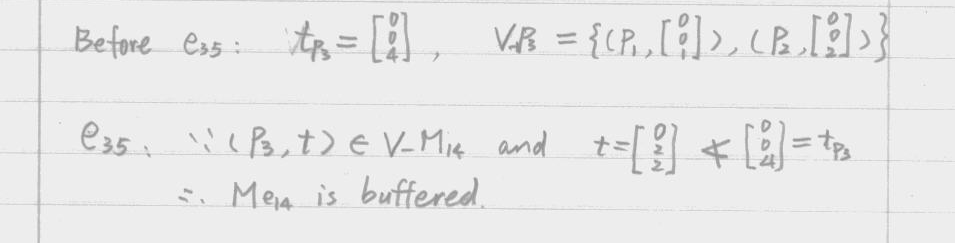 Before e₃₅: t_P₃ = [0 0 4], V_P₃ = {(P₁, [0 0 1]), (P₂, [0 0 2])}
e₃₅. ∵ (P₃, t) ∈ V_M₁₄ and t = [0 2 2] ≮ [0 0 4] = t_P₃
∴ Me₁₄ is buffered.